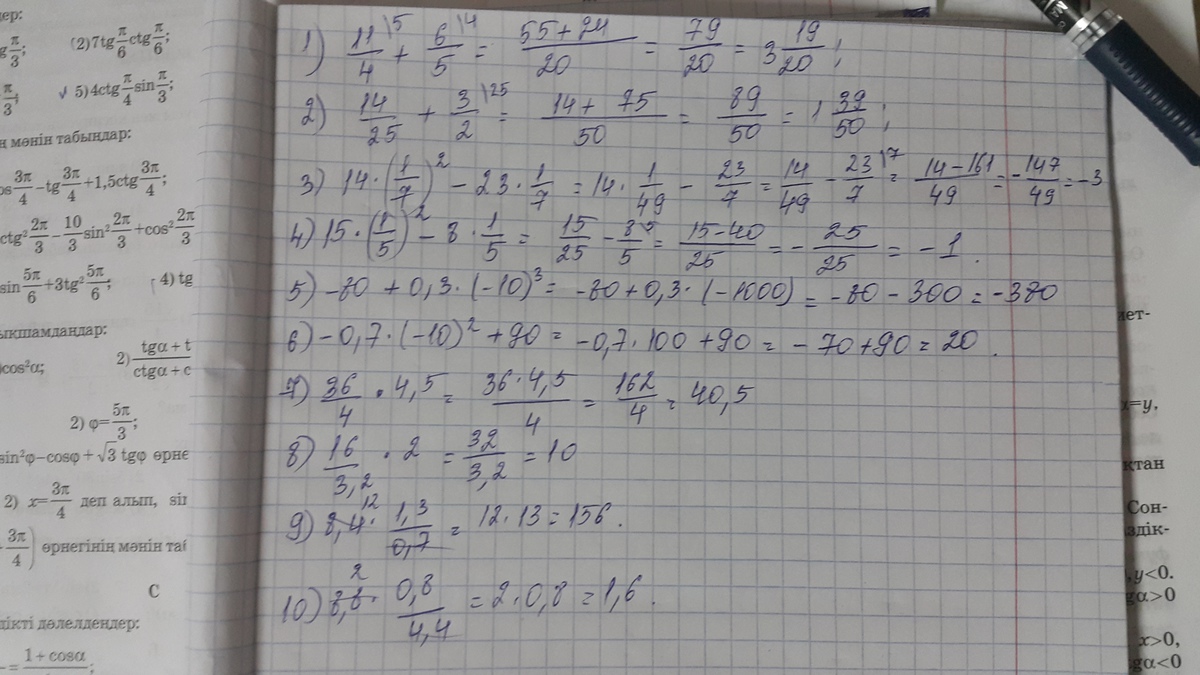 дер:
g π/3; (2) 7tg π/6 ctg π/6;
π/3; √ 5) 4ctg π/4 sin π/3;
ң мәнін табыңдар:
cos 3π/4 −tg 3π/4 +1,5ctg 3π/4;
ctg² 2π/3 − 10/3 sin² 2π/3 +cos² 2π/3
sin 5π/6 +3tg² 5π/6; 4) tg
ықшамдаңдар:
cos²α; 2) tgα + t / ctgα + c
2) φ= 5π/3;
sin²φ−cosφ+√3 tgφ өрне
2) x= 3π/4 деп алып, sin
3π/4) өрнегінің мәнін таб
C
дікті дәлелдеңдер:
= 1+cosα / ;
1) 11/4 \5 + 6/5 \4 = 55+24/20 = 79/20 = 3 19/20;
2) 14/25 + 3/2 \25 = 14+75/50 = 89/50 = 1 39/50;
3) 14·(1/7)² − 23·1/7 = 14·1/49 − 23/7 = 14/49 − 23/7 \7 = 14−161/49 = −147/49 = −3
4) 15·(1/5)² − 8·1/5 = 15/25 − 8/5 \5 = 15−40/25 = −25/25 = −1.
5) −80 + 0,3·(−10)³ = −80+0,3·(−1000) = −80−300 = −380
6) −0,7·(−10)² + 90 = −0,7·100 + 90 = −70+90 = 20.
7) 36/4 · 4,5 = 36·4,5/4 = 162/4 = 40,5
8) 16/3,2 · 2 = 32/3,2 = 10
9) 8,4 12 · 1,3/0,7 = 12·13 = 156.
10) 8,8 2 · 0,8/4,4 = 2·0,8 = 1,6.
мет-
x=y,
қтан
Сон-
здік-
y<0.
gα>0
x>0,
gα<0